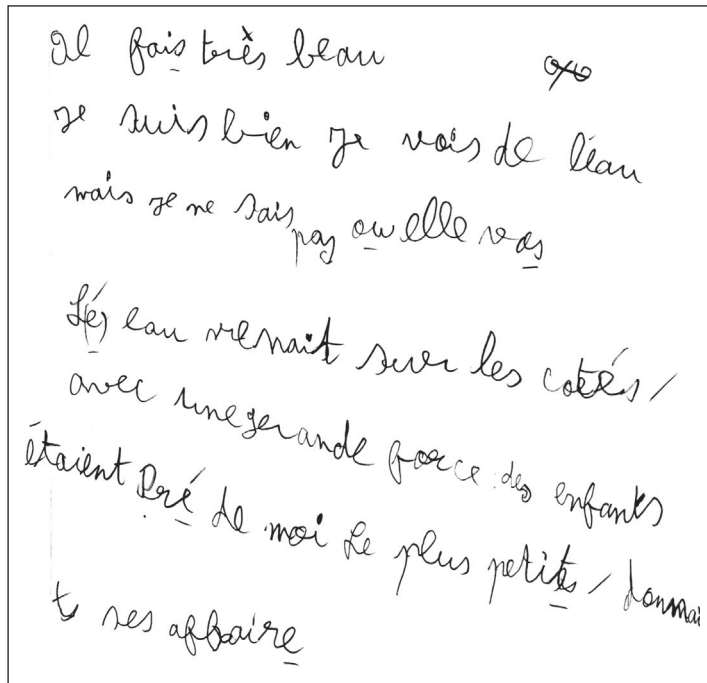 Il fais très beau
je suis bien je vois de l'eau
mais je ne sais pas ou elle vas
Lés eau venait sur les cotés /
avec une grande force des enfants
étaient Pré de moi Le plus petits / donnai
t ses affaire